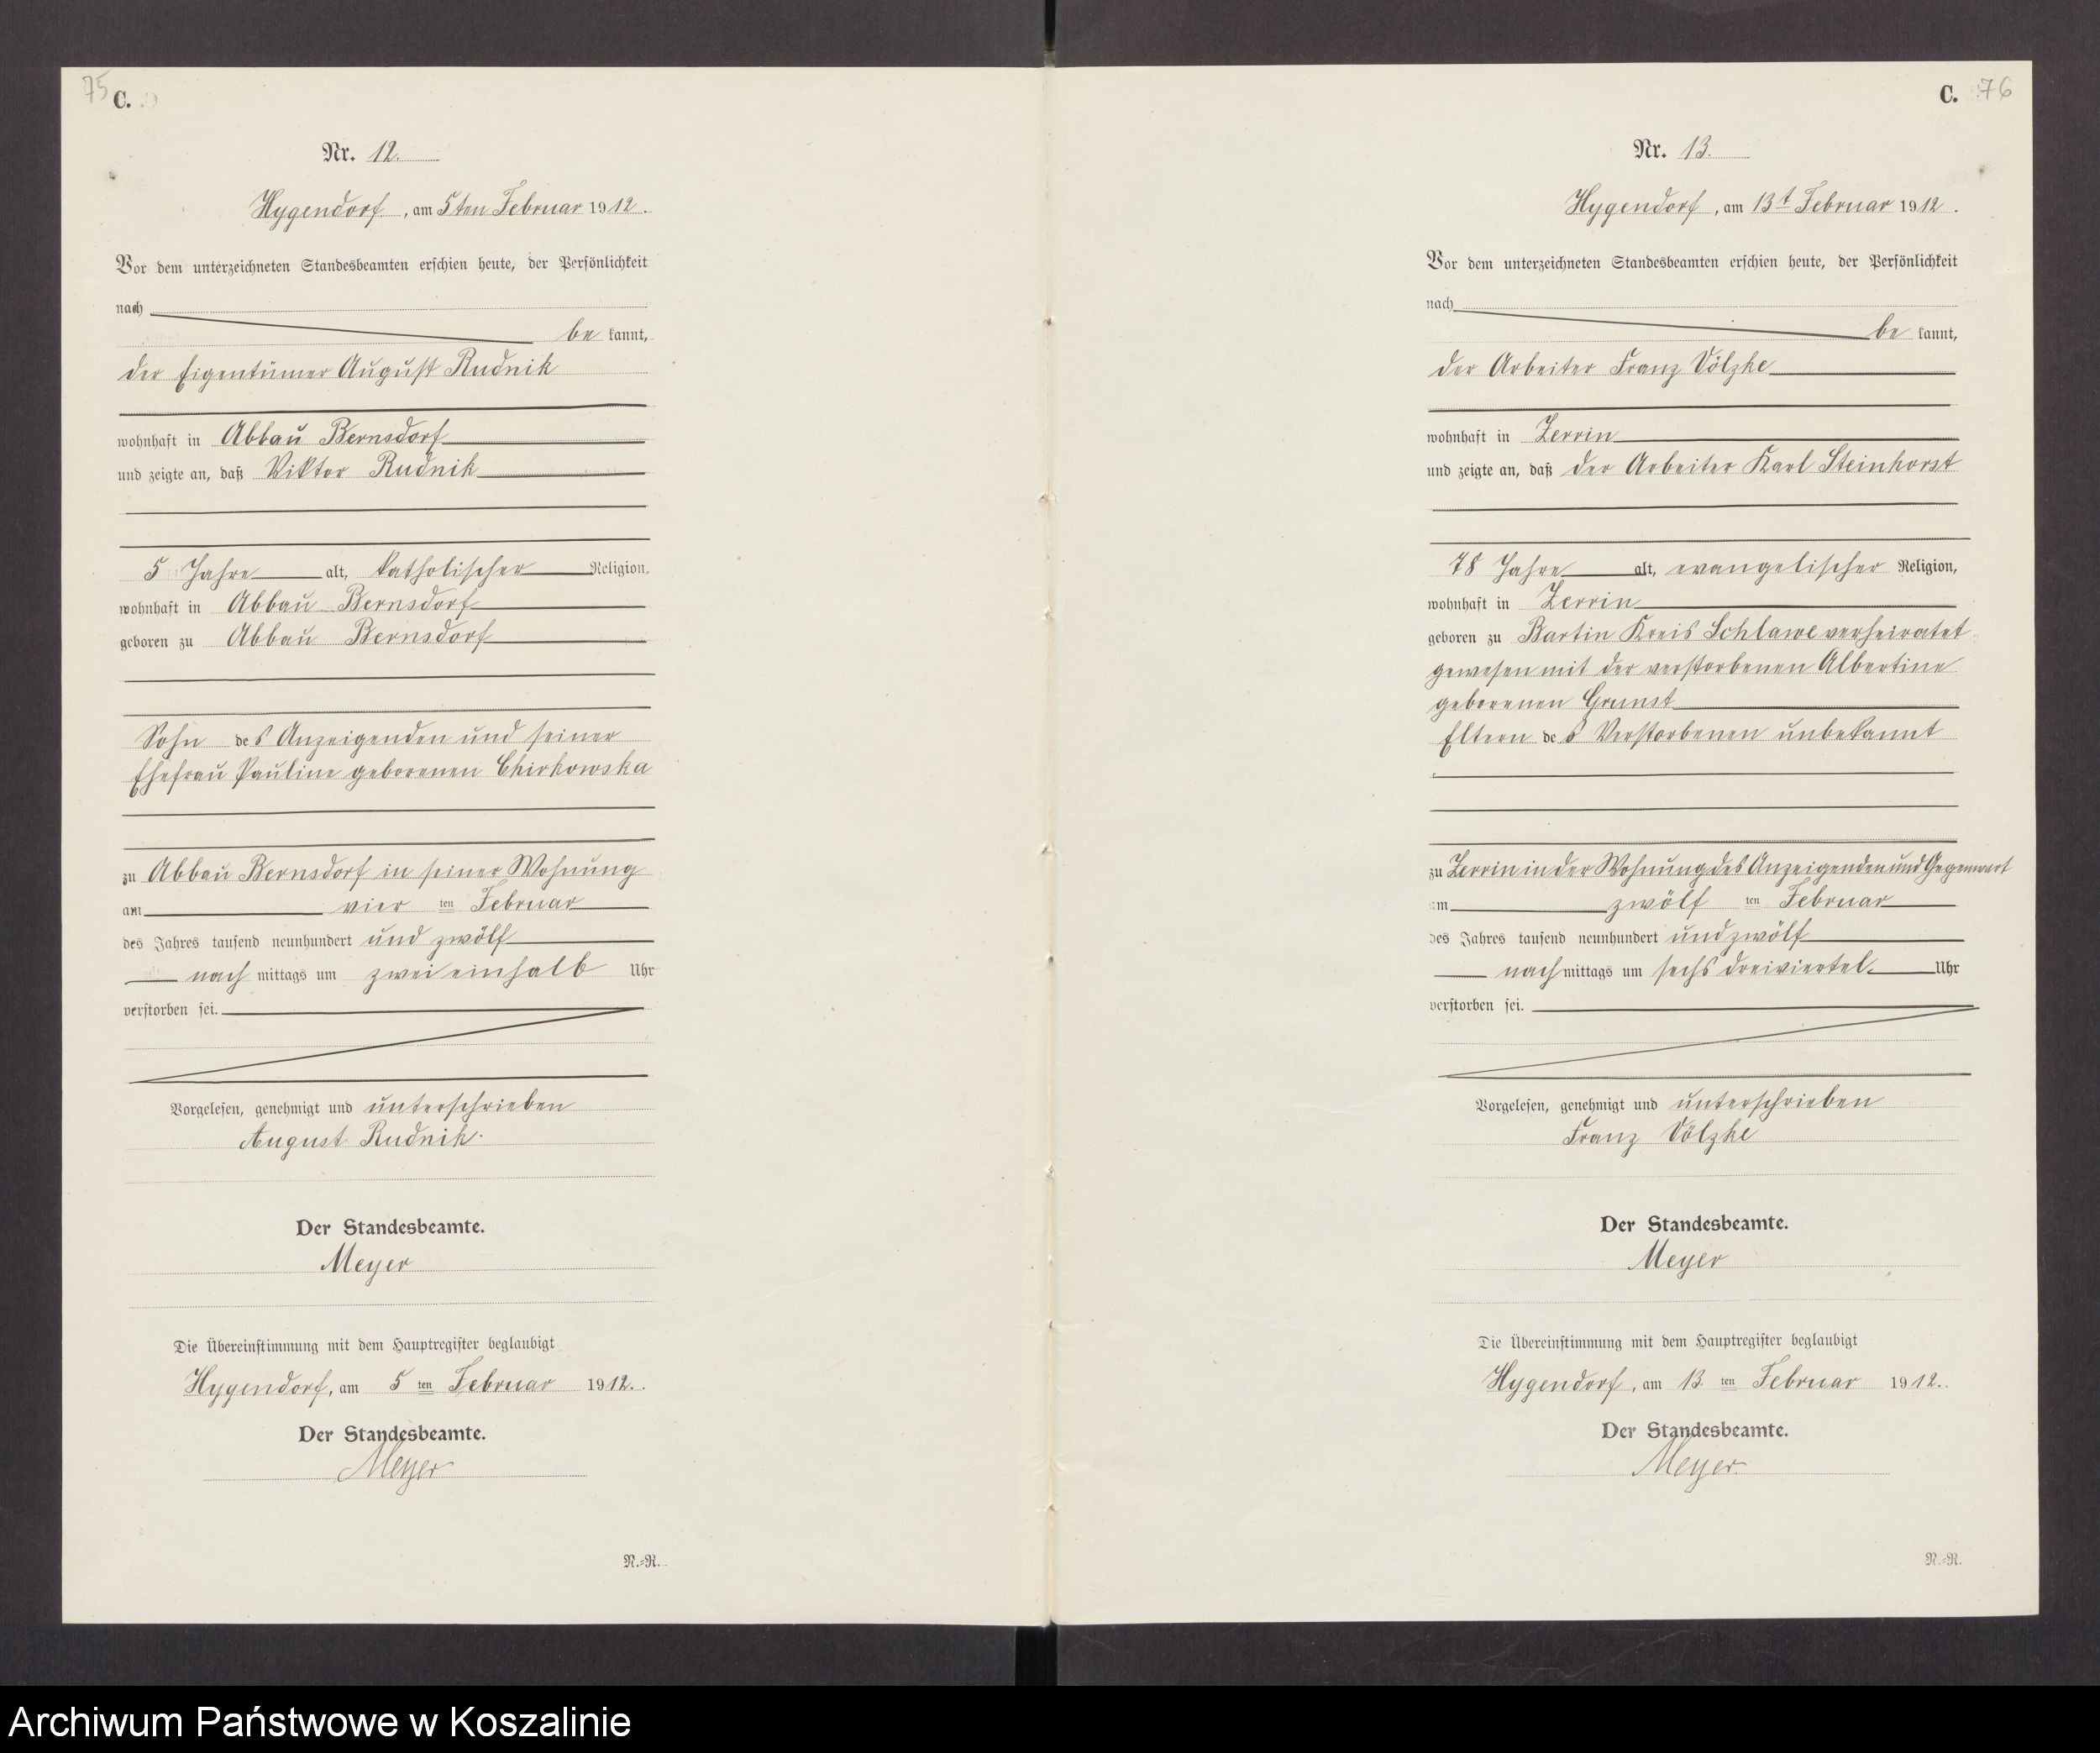 75 C.
Nr. 12.
Hygendorf, am 5ten Februar 1912.
Vor dem unterzeichneten Standesbeamten erschien heute, der Persönlichkeit
nach
be kannt,
der Eigentümer August Rudnik
wohnhaft in Abbau Bernsdorf
und zeigte an, daß Viktor Rudnik
5 Jahre alt, katholischer Religion,
wohnhaft in Abbau Bernsdorf
geboren zu Abbau Bernsdorf
Sohn des Anzeigenden und seiner
Ehefrau Pauline geborenen Chirkowska
zu Abbau Bernsdorf in seiner Wohnung
am vier ten Februar
des Jahres tausend neunhundert und zwölf
nach mittags um zwei einhalb Uhr
verstorben sei.
Vorgelesen, genehmigt und unterschrieben
August Rudnik.
Der Standesbeamte.
Meyer
Die Übereinstimmung mit dem Hauptregister beglaubigt
Hygendorf, am 5 ten Februar 1912.
Der Standesbeamte.
Meyer
N.-R.
C. 76
Nr. 13.
Hygendorf, am 13t Februar 1912.
Vor dem unterzeichneten Standesbeamten erschien heute, der Persönlichkeit
nach
be kannt,
der Arbeiter Franz Völzke
wohnhaft in Zerrin
und zeigte an, daß der Arbeiter Karl Steinhorst
78 Jahre alt, evangelischer Religion,
wohnhaft in Zerrin
geboren zu Bartin Kreis Schlawe verheiratet
gewesen mit der verstorbenen Albertine
geborenen Grunst
Eltern des Verstorbenen unbekannt
zu Zerrin in der Wohnung des Anzeigenden und Gegenwart
am zwölf ten Februar
des Jahres tausend neunhundert und zwölf
nach mittags um sechs dreiviertel Uhr
verstorben sei.
Vorgelesen, genehmigt und unterschrieben
Franz Völzke
Der Standesbeamte.
Meyer
Die Übereinstimmung mit dem Hauptregister beglaubigt
Hygendorf, am 13. ten Februar 1912.
Der Standesbeamte.
Meyer.
N.-R.
Archiwum Państwowe w Koszalinie